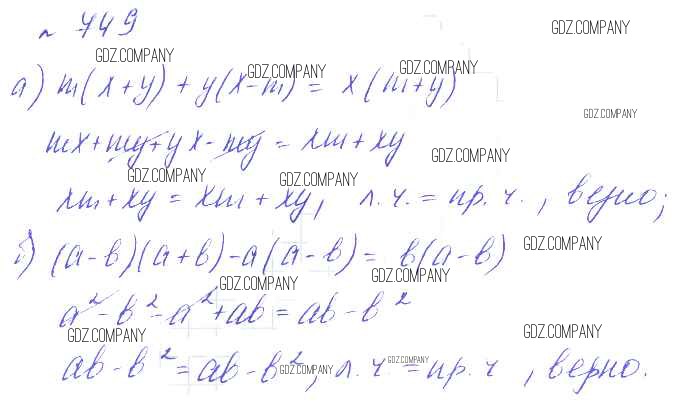 № 749
GDZ.COMPANY
GDZ.COMPANY
а) m(x+y) + y(x-m) = x(m+y)
GDZ.COMPANY
GDZ.COMPANY
GDZ.COMPANY
mx+my+yx-my = xm+xy
GDZ.COMPANY
GDZ.COMPANY
GDZ.COMPANY
xm+xy = xm+xy, л.ч. = пр.ч., верно;
б) (a-b)(a+b)-a(a-b) = b(a-b)
GDZ.COMPANY
GDZ.COMPANY
GDZ.COMPANY
a²-b²-a²+ab = ab-b²
GDZ.COMPANY
GDZ.COMPANY
ab-b² = ab-b², л.ч. = пр.ч, верно.
GDZ.COMPANY
GDZ.COMPANY